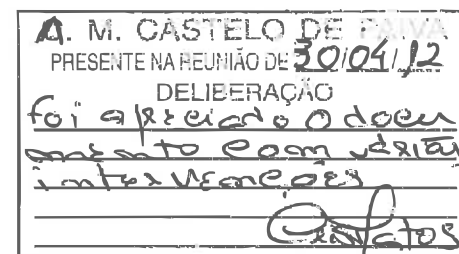 A. M. CASTELO DE PAIVA
PRESENTE NA REUNIÃO DE 30/04/12
DELIBERAÇÃO
foi apreciado o docu
mento com várias
intervenções